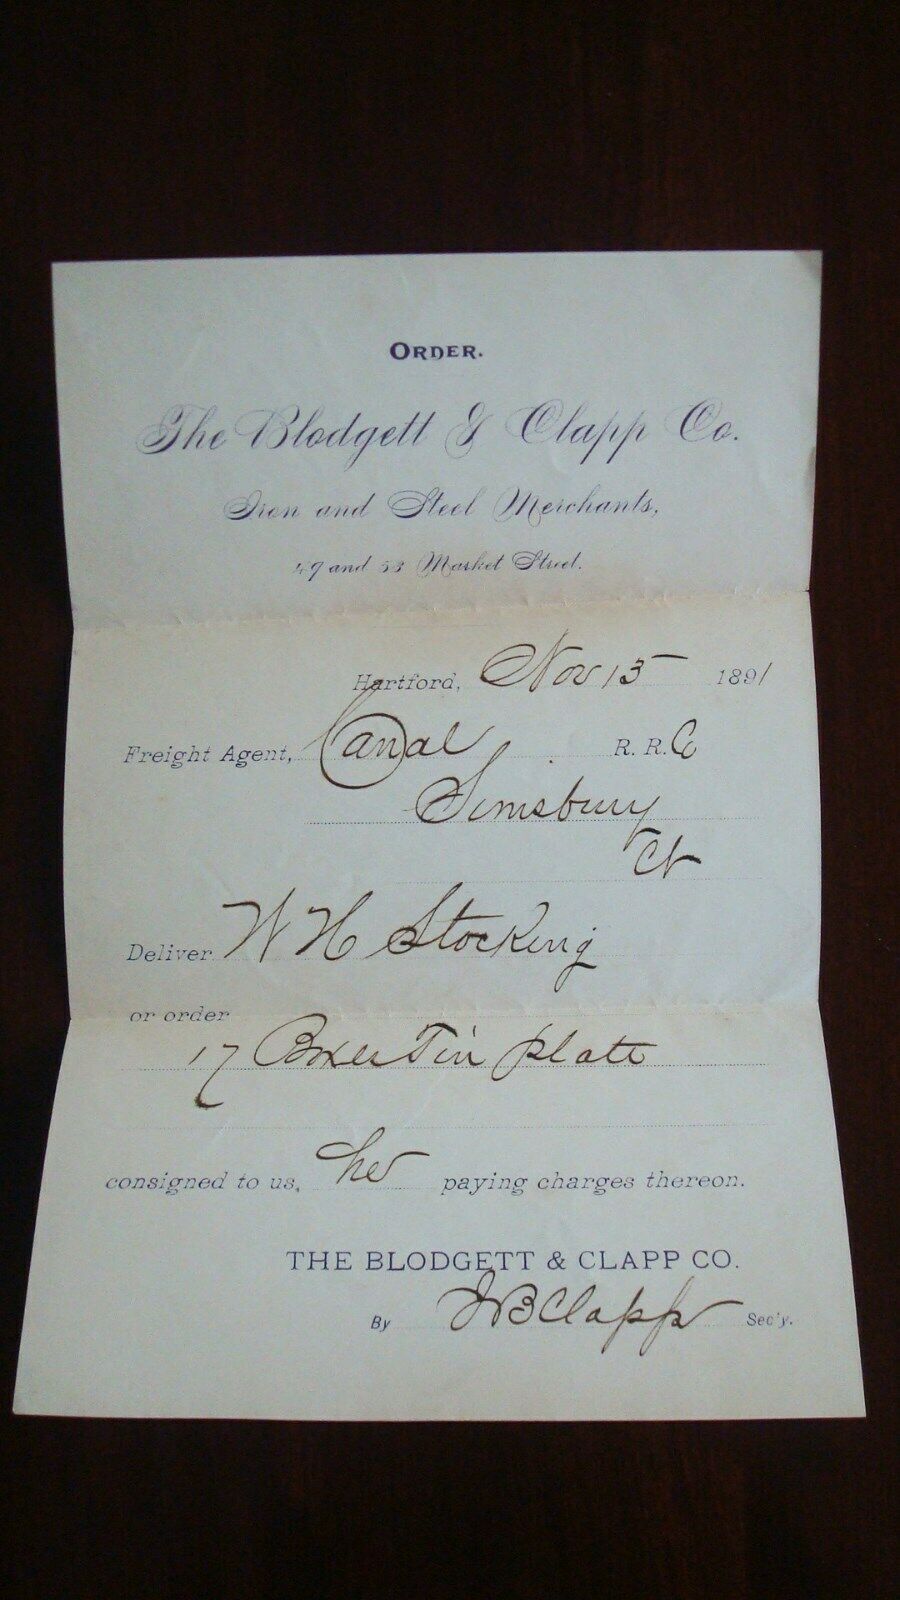 ORDER.
The Blodgett & Clapp Co.
Iron and Steel Merchants,
49 and 53 Market Street.
Hartford, Nov 13 1891
Freight Agent, Canal R. R. Co
Simsbury
Ct
Deliver W H Stocking
or order
17 Boxes Tin plate
consigned to us, he paying charges thereon.
THE BLODGETT & CLAPP CO.
By JB Clapp Sec'y.